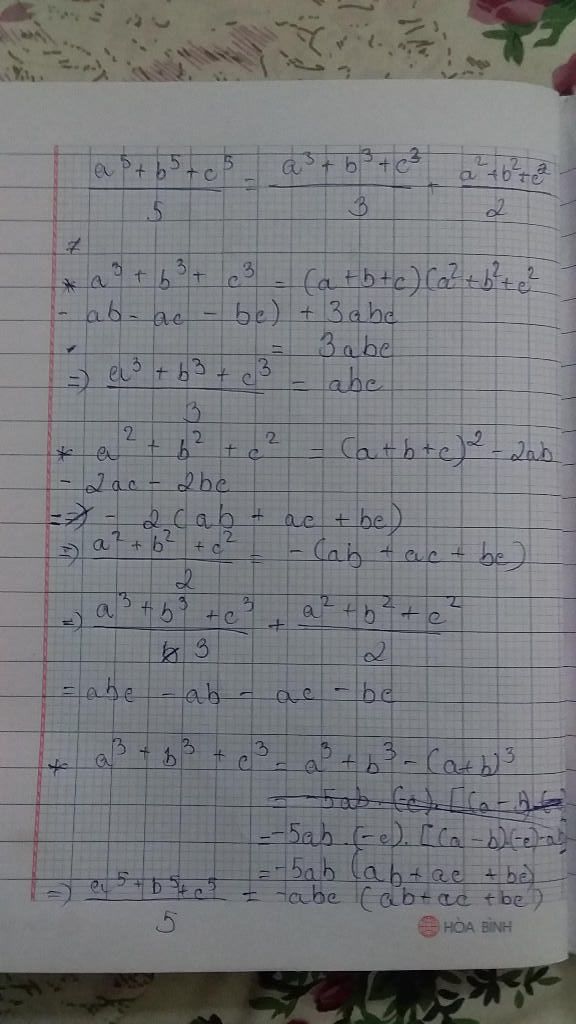 a⁵ + b⁵ + c⁵ / 5 = a³ + b³ + c³ / 3 + a² + b² + c² / 2
* a³ + b³ + c³ = (a + b + c) (a² + b² + c²
- ab - ac - bc) + 3abc
= 3abc
=> a³ + b³ + c³ / 3 = abc
* a² + b² + c² = (a + b + c)² - 2ab
- 2ac - 2bc
=> - 2 (ab + ac + bc)
=> a² + b² + c² / 2 = - (ab + ac + bc)
=> a³ + b³ + c³ / 3 + a² + b² + c² / 2
= abc - ab - ac - bc
* a³ + b³ + c³ = a³ + b³ - (a + b)³
= -5ab (-c). [(a -
= -5ab . (-c). [(a - b)(c) - ab]
= -5ab (ab + ac + bc)
=> a⁵ + b⁵ + c⁵ / 5 = -abc (ab + ac + bc)
HÒA BÌNH